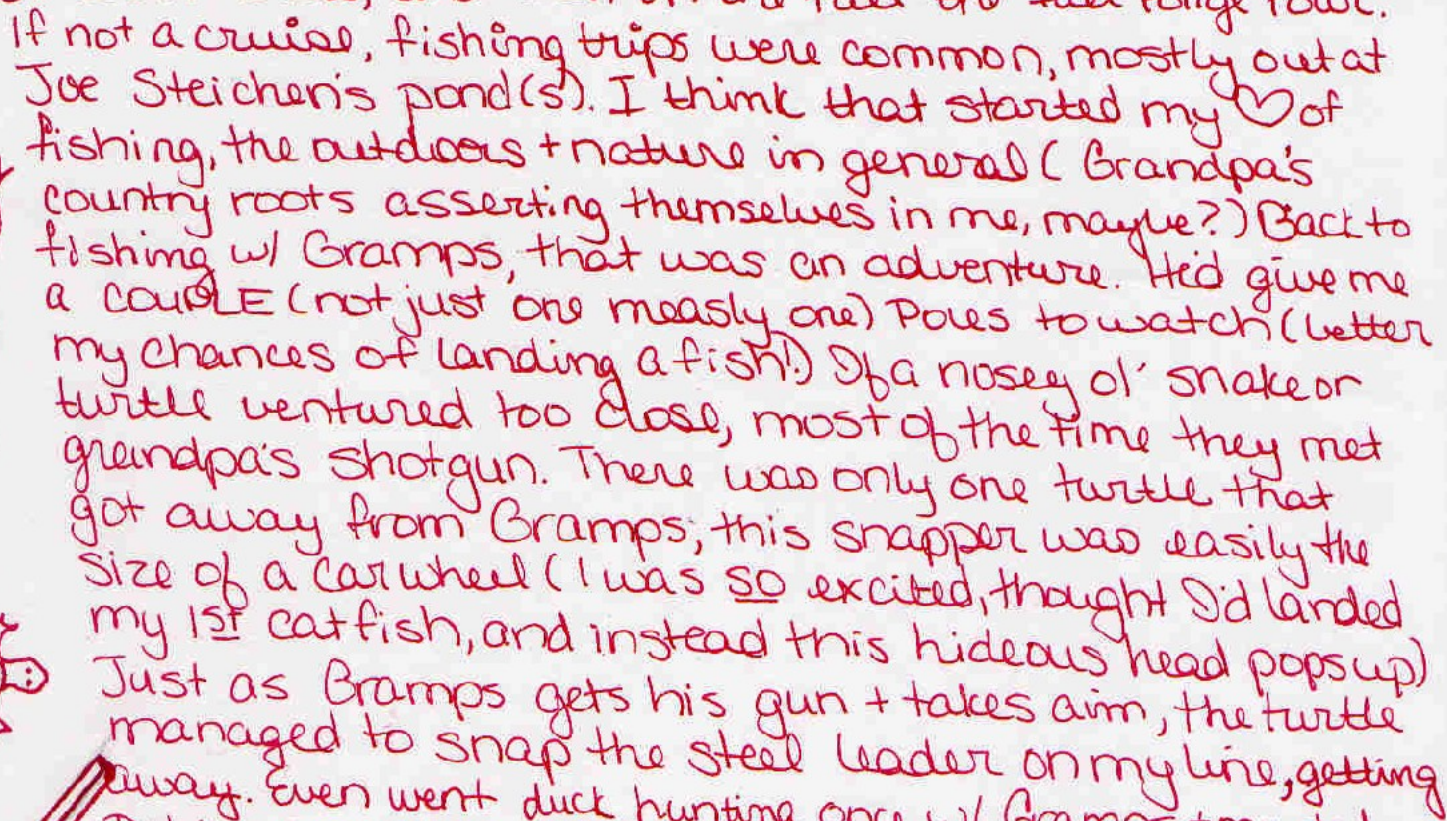 If not a cruise, fishing trips were common, mostly out at
Joe Steichen's pond(s). I think that started my ♡ of
fishing, the outdoors + nature in general (Grandpa's
country roots asserting themselves in me, maybe?) Back to
fishing w/ Gramps, that was an adventure. He'd give me
a COUPLE (not just one measly one) Poles to watch (better
my chances of landing a fish!) If a nosey ol' snake or
turtle ventured too close, most of the time they met
grandpa's shotgun. There was only one turtle that
got away from Gramps; this snapper was easily the
size of a car wheel (I was so excited, thought I'd landed
my 1st catfish, and instead this hideous head pops up)
Just as Gramps gets his gun + takes aim, the turtle
managed to snap the steel leader on my line, getting
away. Even went duck hunting once w/ Gramps